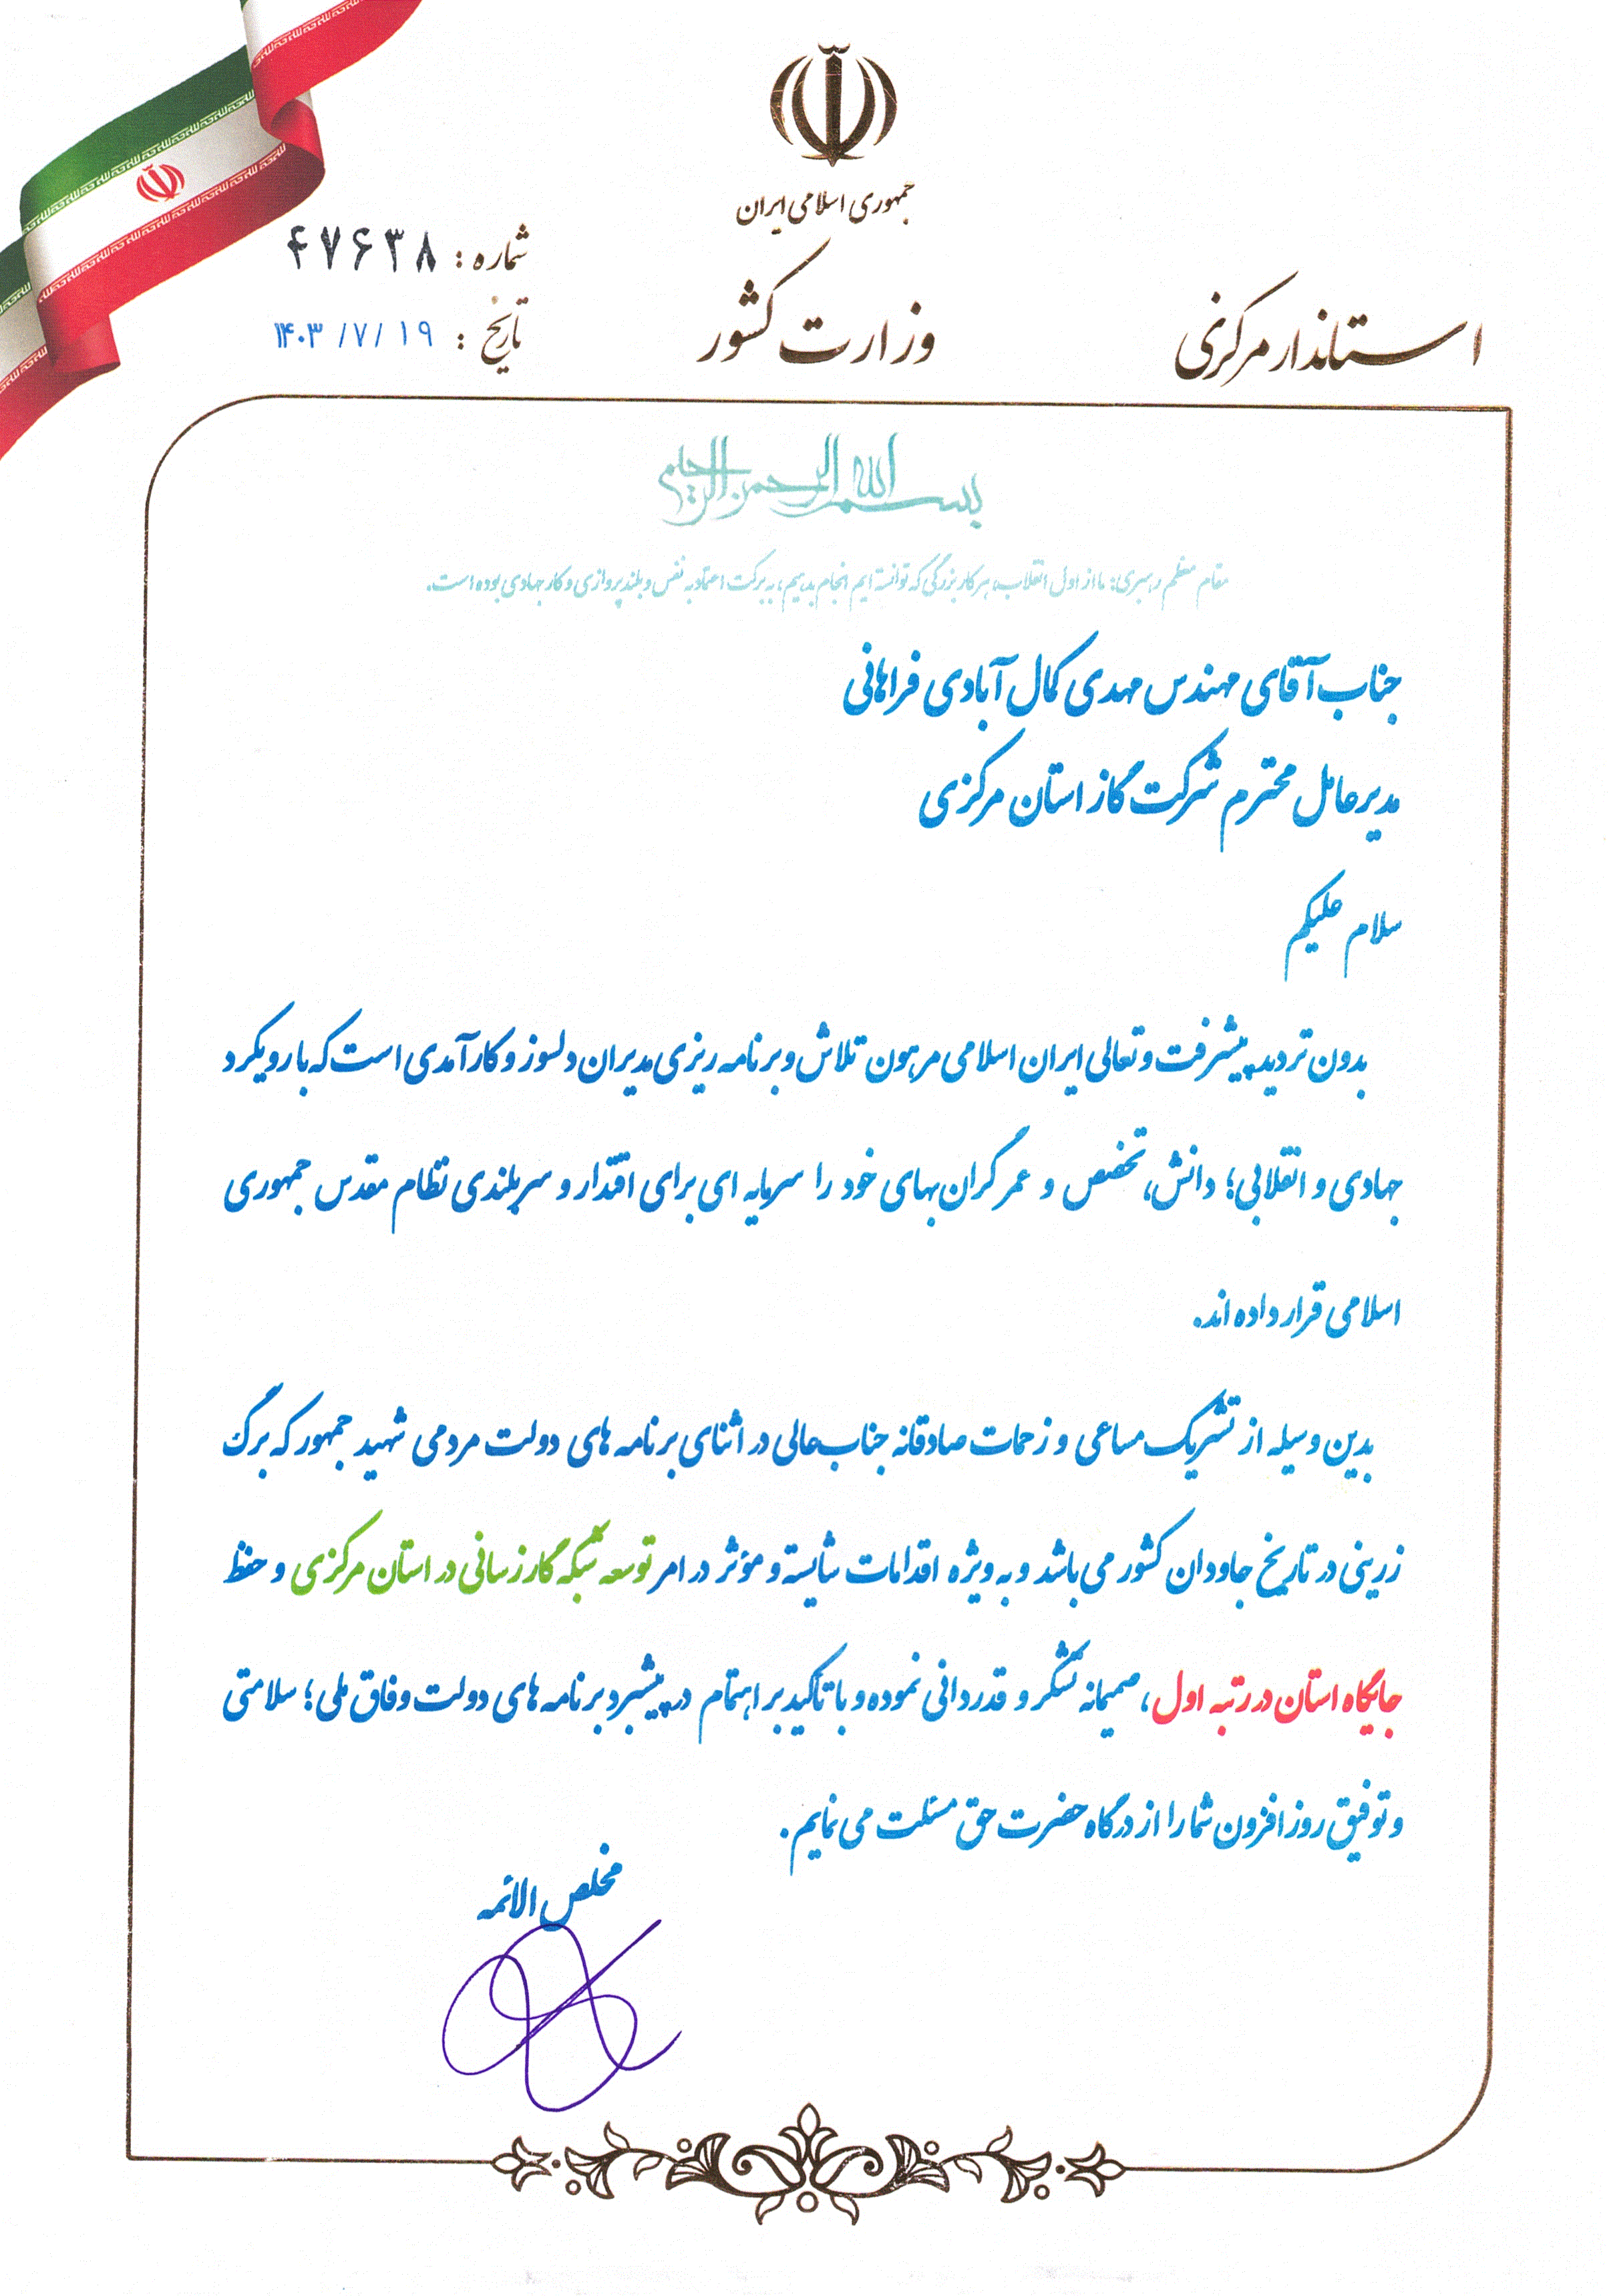 جمهوری اسلامی ایران
وزارت کشور
استاندار مرکزی
شماره : ۴۷۶۳۸
تاریخ : ۱۴۰۳/۷/۱۹
بسم الله الرحمن الرحیم
مقام معظم رهبری: ما از اول انقلاب، هر کار بزرگی که توانسته ایم انجام بدهیم، به برکت اعتماد به نفس و بلند پروازی و کار جهادی بوده است.
جناب آقای مهندس مهدی کمال آبادی فراهانی
مدیرعامل محترم شرکت گاز استان مرکزی
سلام علیکم
بدون تردید پیشرفت و تعالی ایران اسلامی مرهون تلاش و برنامه ریزی مدیران دلسوز و کارآمدی است که با رویکرد
جهادی و انقلابی؛ دانش، تخصص و عمر گران بهای خود را سرمایه ای برای اقتدار و سربلندی نظام مقدس جمهوری
اسلامی قرار داده اند.
بدین وسیله از تشریک مساعی و زحمات صادقانه جناب عالی در اثنای برنامه های دولت مردمی شهید جمهور که برگ
زرینی در تاریخ جاودان کشور می باشد و به ویژه اقدامات شایسته و مؤثر در امر توسعه شبکه گازرسانی در استان مرکزی و حفظ
جایگاه استان در رتبه اول، صمیمانه تشکر و قدردانی نموده و با تاکید بر اهتمام در پیشبرد برنامه های دولت وفاق ملی؛ سلامتی
و توفیق روز افزون شما را از درگاه حضرت حق مسئلت می نمایم.
مخلص الائمه